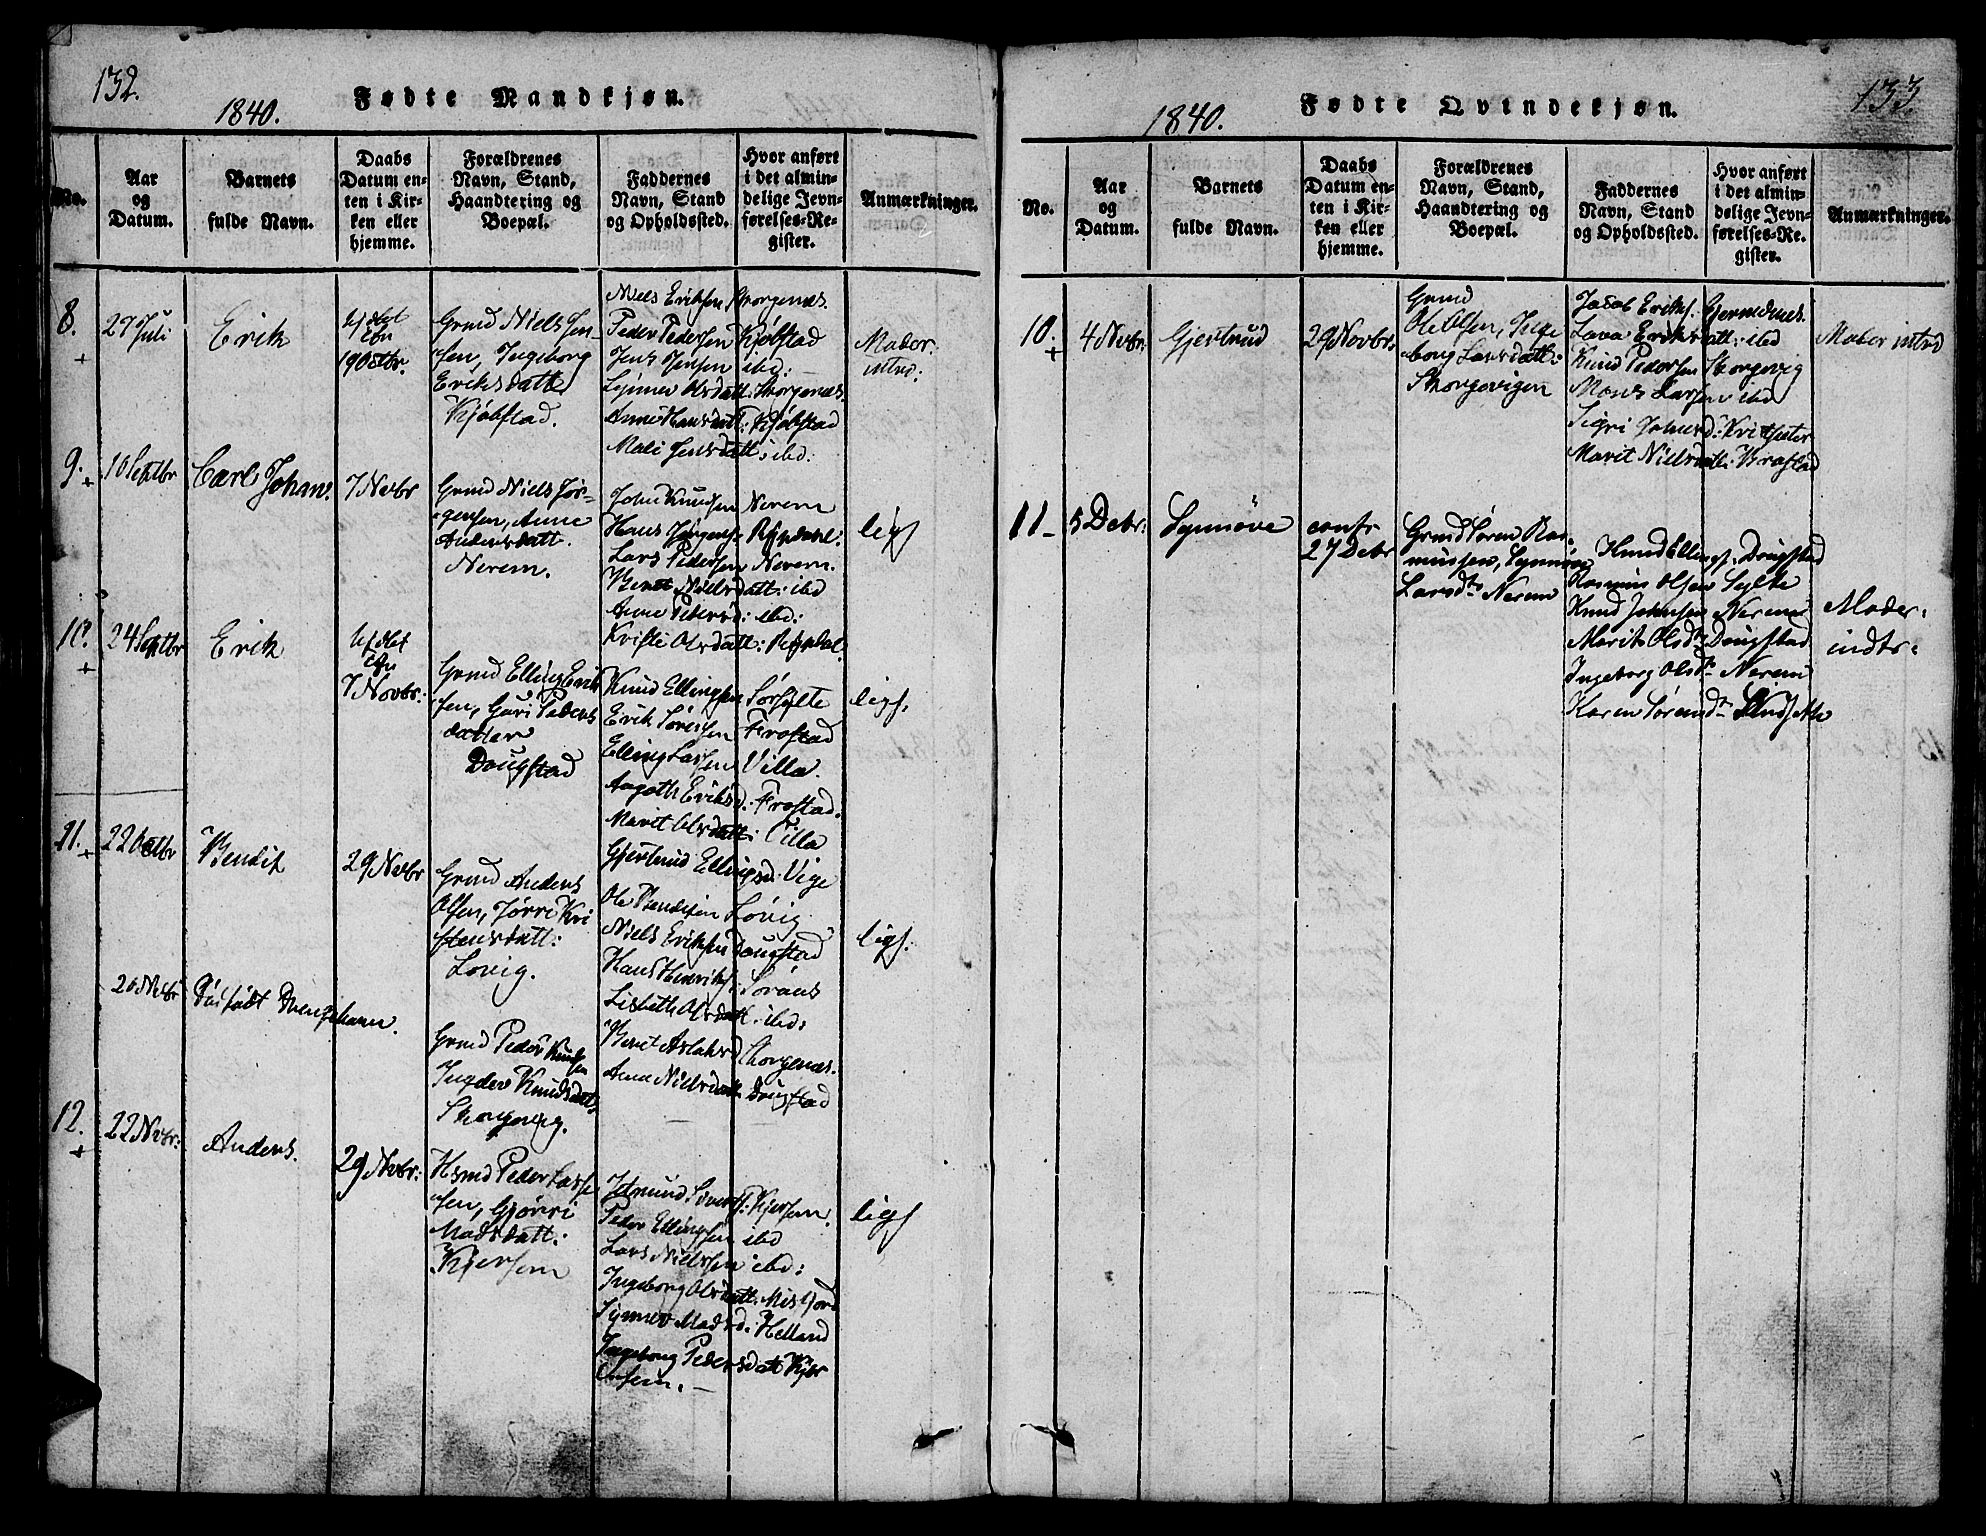 132.
1840.
Fødte Mandkjøn.
No.
Aar
og
Datum.
Barnets
fulde Navn.
Daabs
Datum en-
ten i Kir-
ken eller
hjemme.
Forældrenes
Navn, Stand,
Haandtering og
Boepæl.
Faddernes
Navn, Stand
og Opholdssted.
Hvor anført
i det almin-
delige Jevn-
førelses-Re-
gister.
Anmærkninger.
8.
+
27 Juli
Erik
19 Octbr.
Gmd Niels Jen-
sen, Ingeborg
Eriksdatt
Kjøbstad.
Niels Eriksen Skorgenæs.
Peder Pedersen Kjøbstad
Jens Jensen ibd:
Synnev Olsdatt: Skorgenæs.
Anne Hansdatt: Kjøbstad
Mali Jensdatt: ibd:
Moder:
intrd:
9.
+
10 Septbr
Carl Johan.
7 Novbr
Gmd Niels Jør-
gensen, Anne
Andersdatt.
Nerem.
John Knudsen Nerem
Hans Jørgens: Ryndahl:
Lars Pedersen Nerem.
Beret Nielsdatt: ibd
Anne Pedersd: ibd:
Kristi Olsdatt: Ryndal.
ligs
10.
+
24 Septbr
Erik
7 Novbr:
Gmd Elling Erik
sen, Guri Peders
datter
Dougstad
Knud Ellingsen Sørsylte
Erik Sørensen Frostad
Elling Larsen Villa.
Aagoth Eriksd: Frostad.
Marit Olsdatt: Villa
Gjertrud Ellingsd: Vige
ligs.
11.
+
22 Octbr
Bendik
29 Novbr
Gmd Anders
Olsen, Jørri Kri
stensdatt:
Lovig.
Ole Bendiksen Lovig
Niels Eriksen Dougstad
Hans Henriks: Soraas
Lisbeth Olsdatt. ibd:
Beret Aslaksd Skorgenæs.
Anne Nielsdatt. Dougstad
ligs.
20 Nvbr
Døifødt Drengebarn.
Gmd Peder Knudsen
Ingeber Knudsdatt
Skorgevig.
12.
+
22 Nvbr:
Anders.
29 Nvbr:
Hsmd Peder Lars
sen, Gjørri
Madsdatt:
Kjersem
Jetmund Sivers: Kjersem.
Peder Ellingsen ibd
Lars Nielsen ibd:
Ingeborg Olsdatt: Misfjord
Synnev Madsd: Helland
Ingeborg Pedersdatt Kjer
sem. —
ligs
133.
1840.
Fødte Qvindekjøn.
No.
Aar
og
Datum.
Barnets
fulde Navn.
Daabs
Datum en-
ten i Kir-
ken eller
hjemme.
Forældrenes
Navn, Stand,
Haandtering og
Boepæl.
Faddernes
Navn, Stand
og Opholdssted.
Hvor anført
i det almin-
delige Jevn-
førelses-Re-
gister.
Anmærkninger.
10.
+
4 Nvbr:
Gjertrud
29 Novbr:
Gmd
Ole Olsen, Inge
borg Larsdatt:
Skorgevigen
Jacob Eriks.
Lava Eriksdatt: ibd
Knud Pedersen Skorgevig
Mons Larsen ibd
Sigri Johnsd: Kvitsæter
Marit Nielsdatt: Brastad
Moder intrd
11
5 Decbr:
Synnøve
confr
27 Decbr
Gmd Søren Ras-
mussen, Synnøve
Larsdr Nerem
Knud Ellings. Dougstad
Rasmus Olsen Sylte
Knud Johnsen Nerem
Marit Olsdr Dougstad
Ingeborg Olsdr Nerem
Karen Sørensdr Lindsæth
Moder:
indtr: